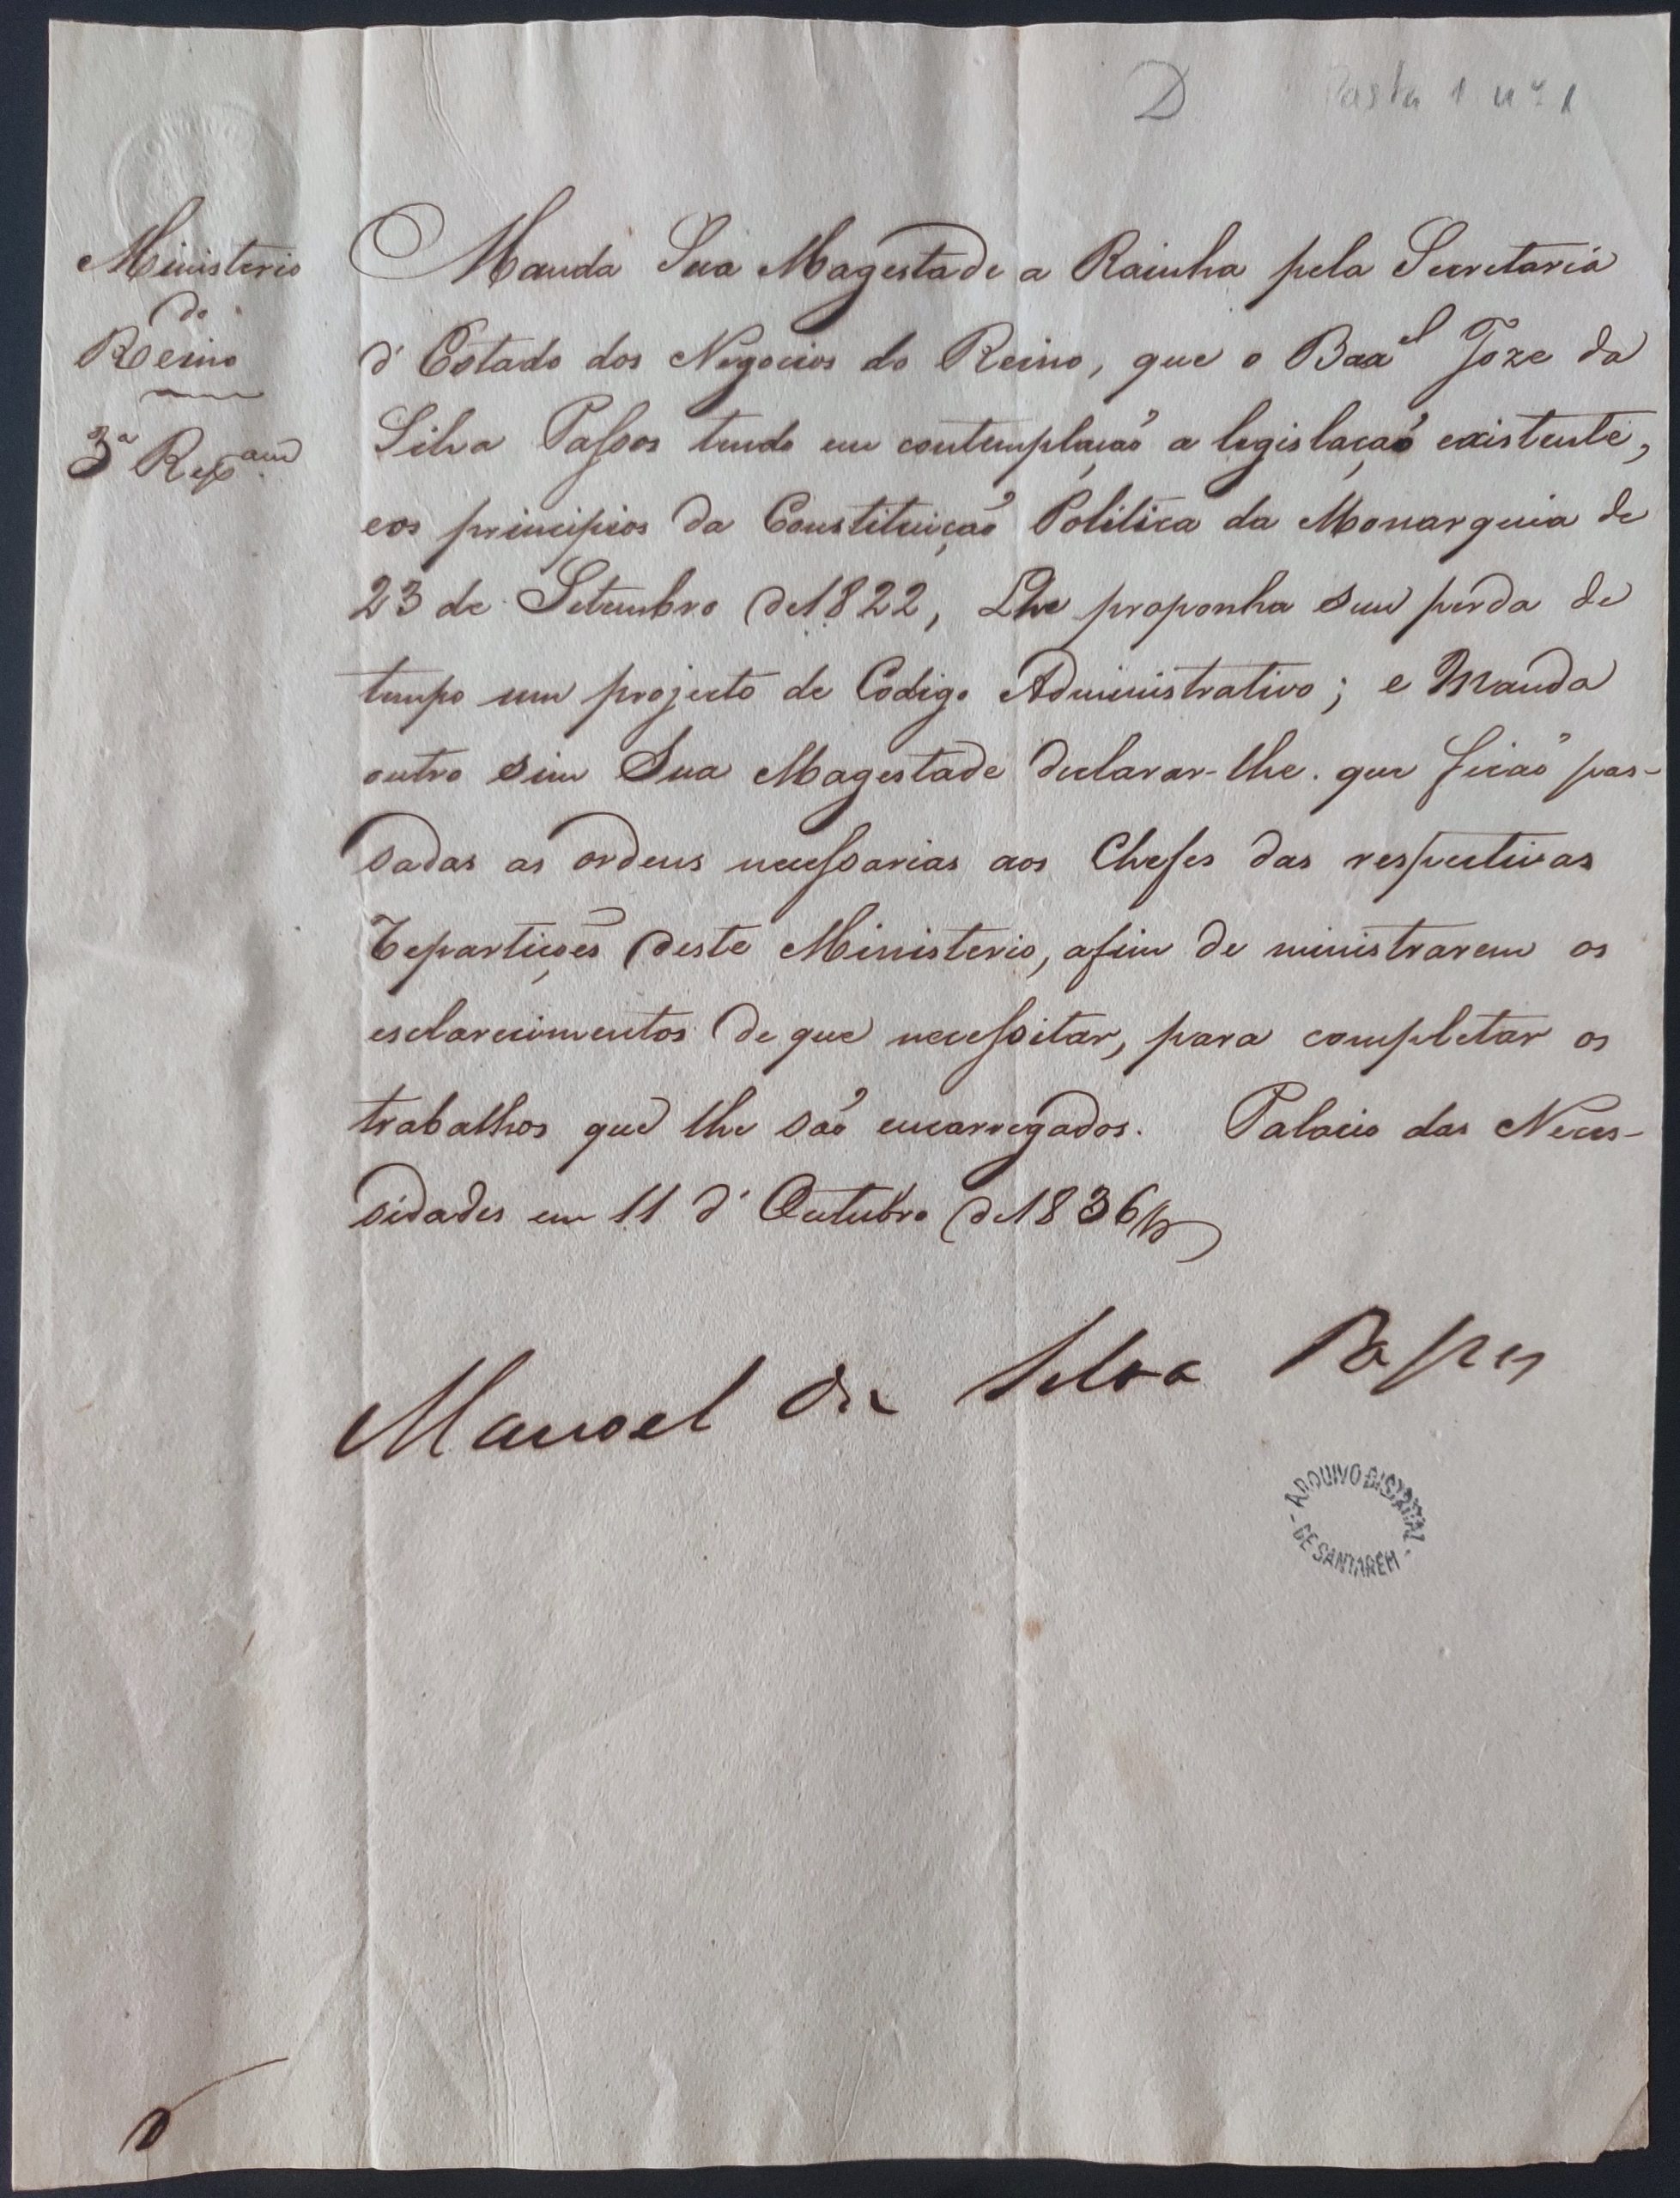 D Pasta 1 nº 1
Ministerio
do
Reino
3ª Repam
Manda Sua Magestade a Rainha pela Secretaria
d'Estado dos Negocios do Reino, que o Baael Joze da
Silva Passos tendo em contemplação a legislação existente,
eos principios da Constituição Politica da Monarquia de
23 de Setembro de 1822, Lhe proponha sem perda de
tempo um projecto de Codigo Administrativo; e Manda
outro sim Sua Magestade declarar-lhe que ficão pas-
sadas as ordens necessarias aos Chefes das respectivas
Repartições deste Ministerio, afim de ministrarem os
esclarecimentos de que necessitar, para completar os
trabalhos que lhe são encarregados. Palacio das Neces-
sidades em 11 d'Outubro de 1836
Manoel da Silva Passos
ARQUIVO DISTRITAL
- DE SANTARÉM -